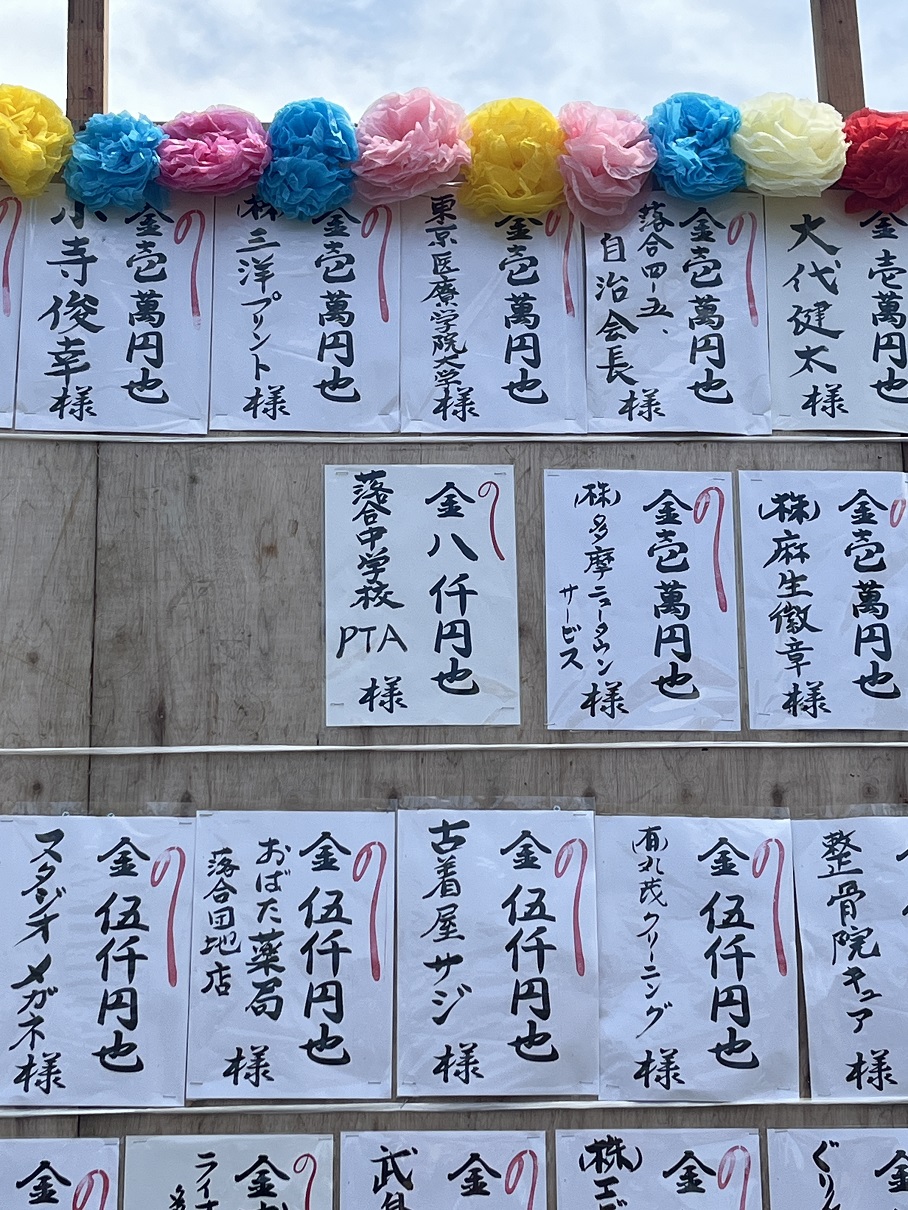 金壱萬円也
大代健太様
金壱萬円也
落合四-五、
自治会長様
金壱萬円也
東京医療学院大学様
金壱萬円也
三洋プリント様
金壱萬円也
小寺俊幸様
金壱萬円也
(株)麻生徽章様
金壱萬円也
(株)多摩ニュータウン
サービス様
金八仟円也
落合中学校
PTA様
整骨院キュア様
金伍仟円也
(有)丸茂クリーニング様
金伍仟円也
古着屋サジ様
金伍仟円也
おばた薬局
落合団地店様
金伍仟円也
スタジオメガネ様
金
金
(株)エビ
金
武
金
ライ
金